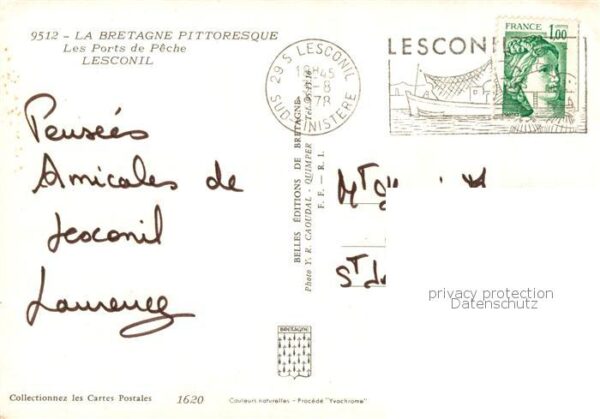 9512 - LA BRETAGNE PITTORESQUE
Les Ports de Pêche
LESCONIL
29 S LESCONIL
18H45
-8
1978
SUD-FINISTERE
LESCONIL
FRANCE
1,00
Pensées
Amicales de
Lesconil
Laurence
BELLES ÉDITIONS DE BRETAGNE
Photo Y. R. CAOUDAL - QUIMPER
F. F. - R. I.
MT
ST
privacy protection
Datenschutz
BRETAGNE
Collectionnez les Cartes Postales
1620
Couleurs naturelles - Procédé "Yvochrome"